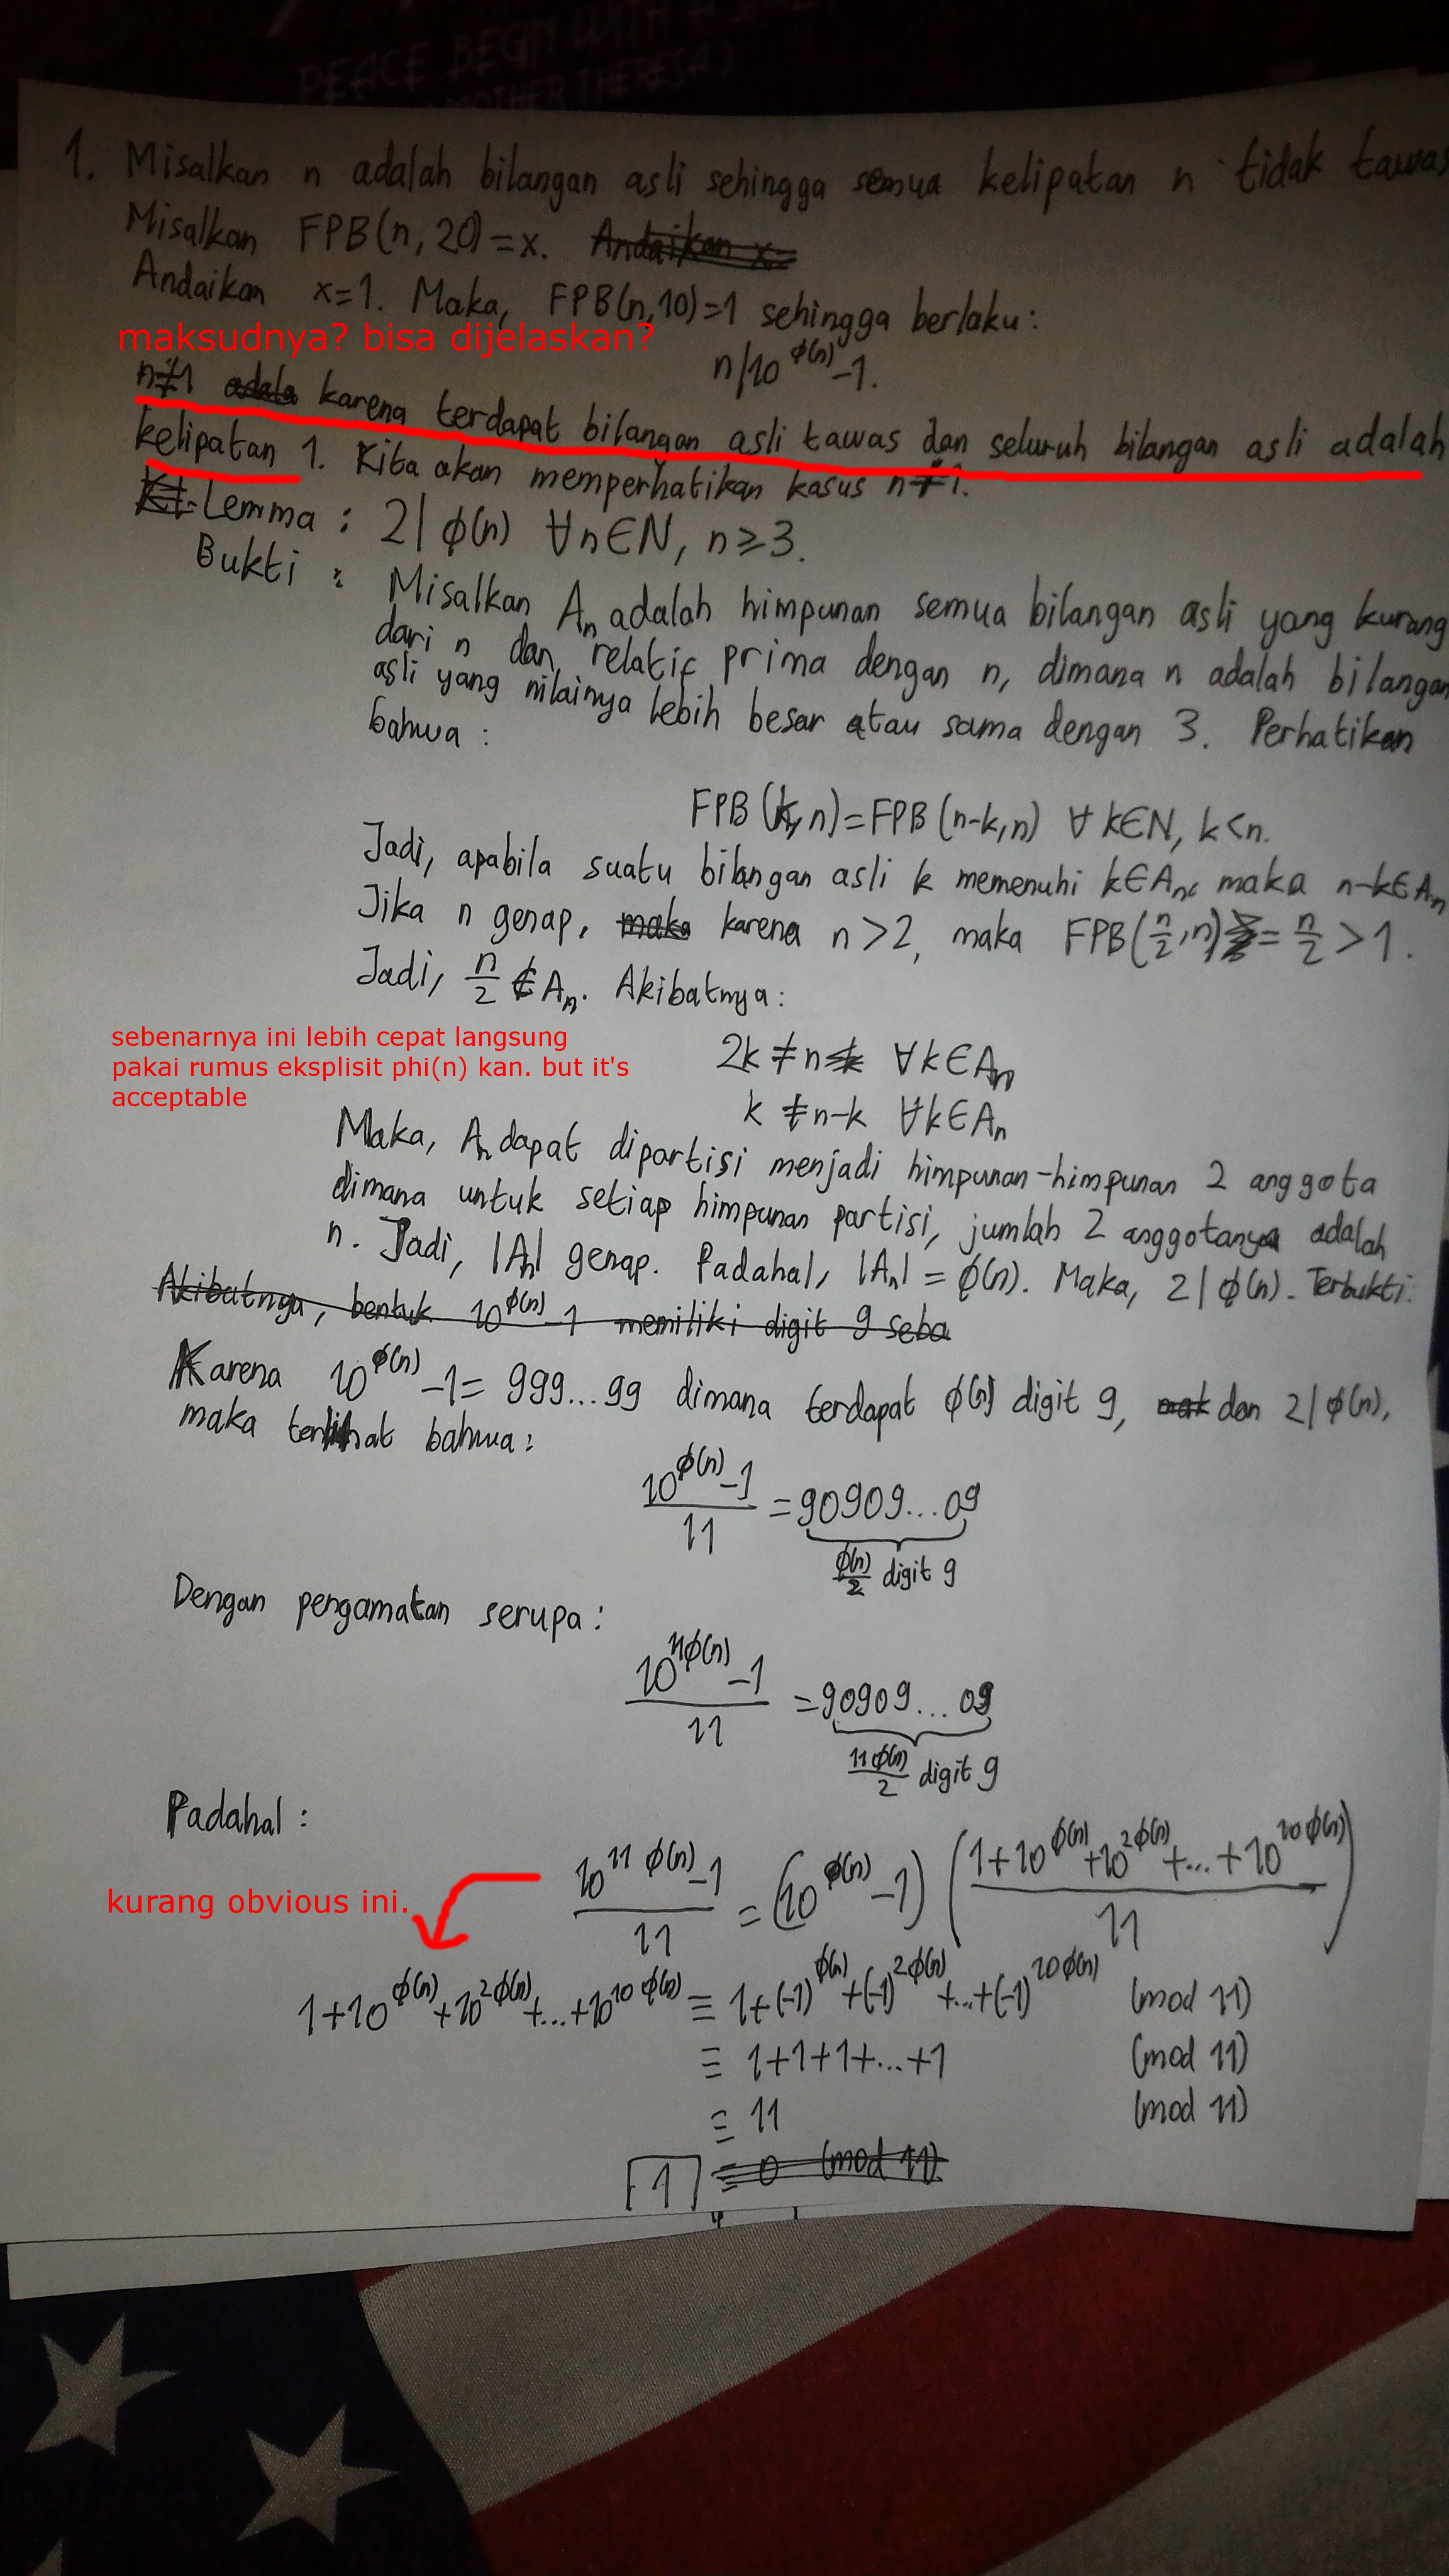 PEACE BEGIN WITH A
MOTHER THERESA)
1. Misalkan n adalah bilangan asli sehingga semua kelipatan n tidak tawas
Misalkan FPB(n, 20)=x. Andaikan x=
Andaikan x=1. Maka, FPB(n,10)=1 sehingga berlaku:
maksudnya? bisa dijelaskan?
n|10^ϕ(n)-1.
n≠1 adala karena terdapat bilangan asli tawas dan seluruh bilangan asli adalah
kelipatan 1. Kita akan memperhatikan kasus n≠1.
Lemma : 2| ϕ(n) ∀n∈N, n≥3.
Bukti : Misalkan Aₙ adalah himpunan semua bilangan asli yang kurang
dari n dan relatif prima dengan n, dimana n adalah bilangan
asli yang nilainya lebih besar atau sama dengan 3. Perhatikan
bahwa :
FPB(k,n)=FPB(n-k,n) ∀ k∈N, k<n.
Jadi, apabila suatu bilangan asli k memenuhi k∈Aₙ, maka n-k∈Aₙ
Jika n genap, maka karena n>2, maka FPB(n/2,n)=n/2>1.
Jadi, n/2∉Aₙ. Akibatnya:
sebenarnya ini lebih cepat langsung
pakai rumus eksplisit phi(n) kan. but it's
acceptable
2k≠n ∀k∈Aₙ
k≠n-k ∀k∈Aₙ
Maka, Aₙ dapat dipartisi menjadi himpunan-himpunan 2 anggota
dimana untuk setiap himpunan partisi, jumlah 2 anggotanya adalah
n. Jadi, |Aₙ| genap. Padahal, |Aₙ|=ϕ(n). Maka, 2|ϕ(n). Terbukti.
Akibatnya, bentuk 10^ϕ(n)-1 memiliki digit 9 seba
Karena 10^ϕ(n)-1=999...99 dimana terdapat ϕ(n) digit 9, mak dan 2|ϕ(n),
maka terlihat bahwa:
(10^ϕ(n)-1)/11 = 90909...09
ϕ(n)/2 digit 9
Dengan pengamatan serupa:
(10^11ϕ(n)-1)/11 = 90909...09
11ϕ(n)/2 digit 9
Padahal :
(10^11ϕ(n)-1)/11 = (10^ϕ(n)-1)((1+10^ϕ(n)+10^2ϕ(n)+...+10^10ϕ(n))/11)
kurang obvious ini.
1+10^ϕ(n)+10^2ϕ(n)+...+10^10ϕ(n) ≡ 1+(-1)^ϕ(n)+(-1)^2ϕ(n)+...+(-1)^10ϕ(n) (mod 11)
≡ 1+1+1+...+1 (mod 11)
≡ 11 (mod 11)
1 ≡ 0 (mod 11)